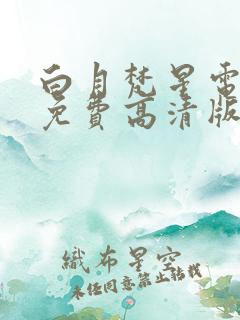 白月梵星電
免費高清版
織布星空
未任同意禁止轉載